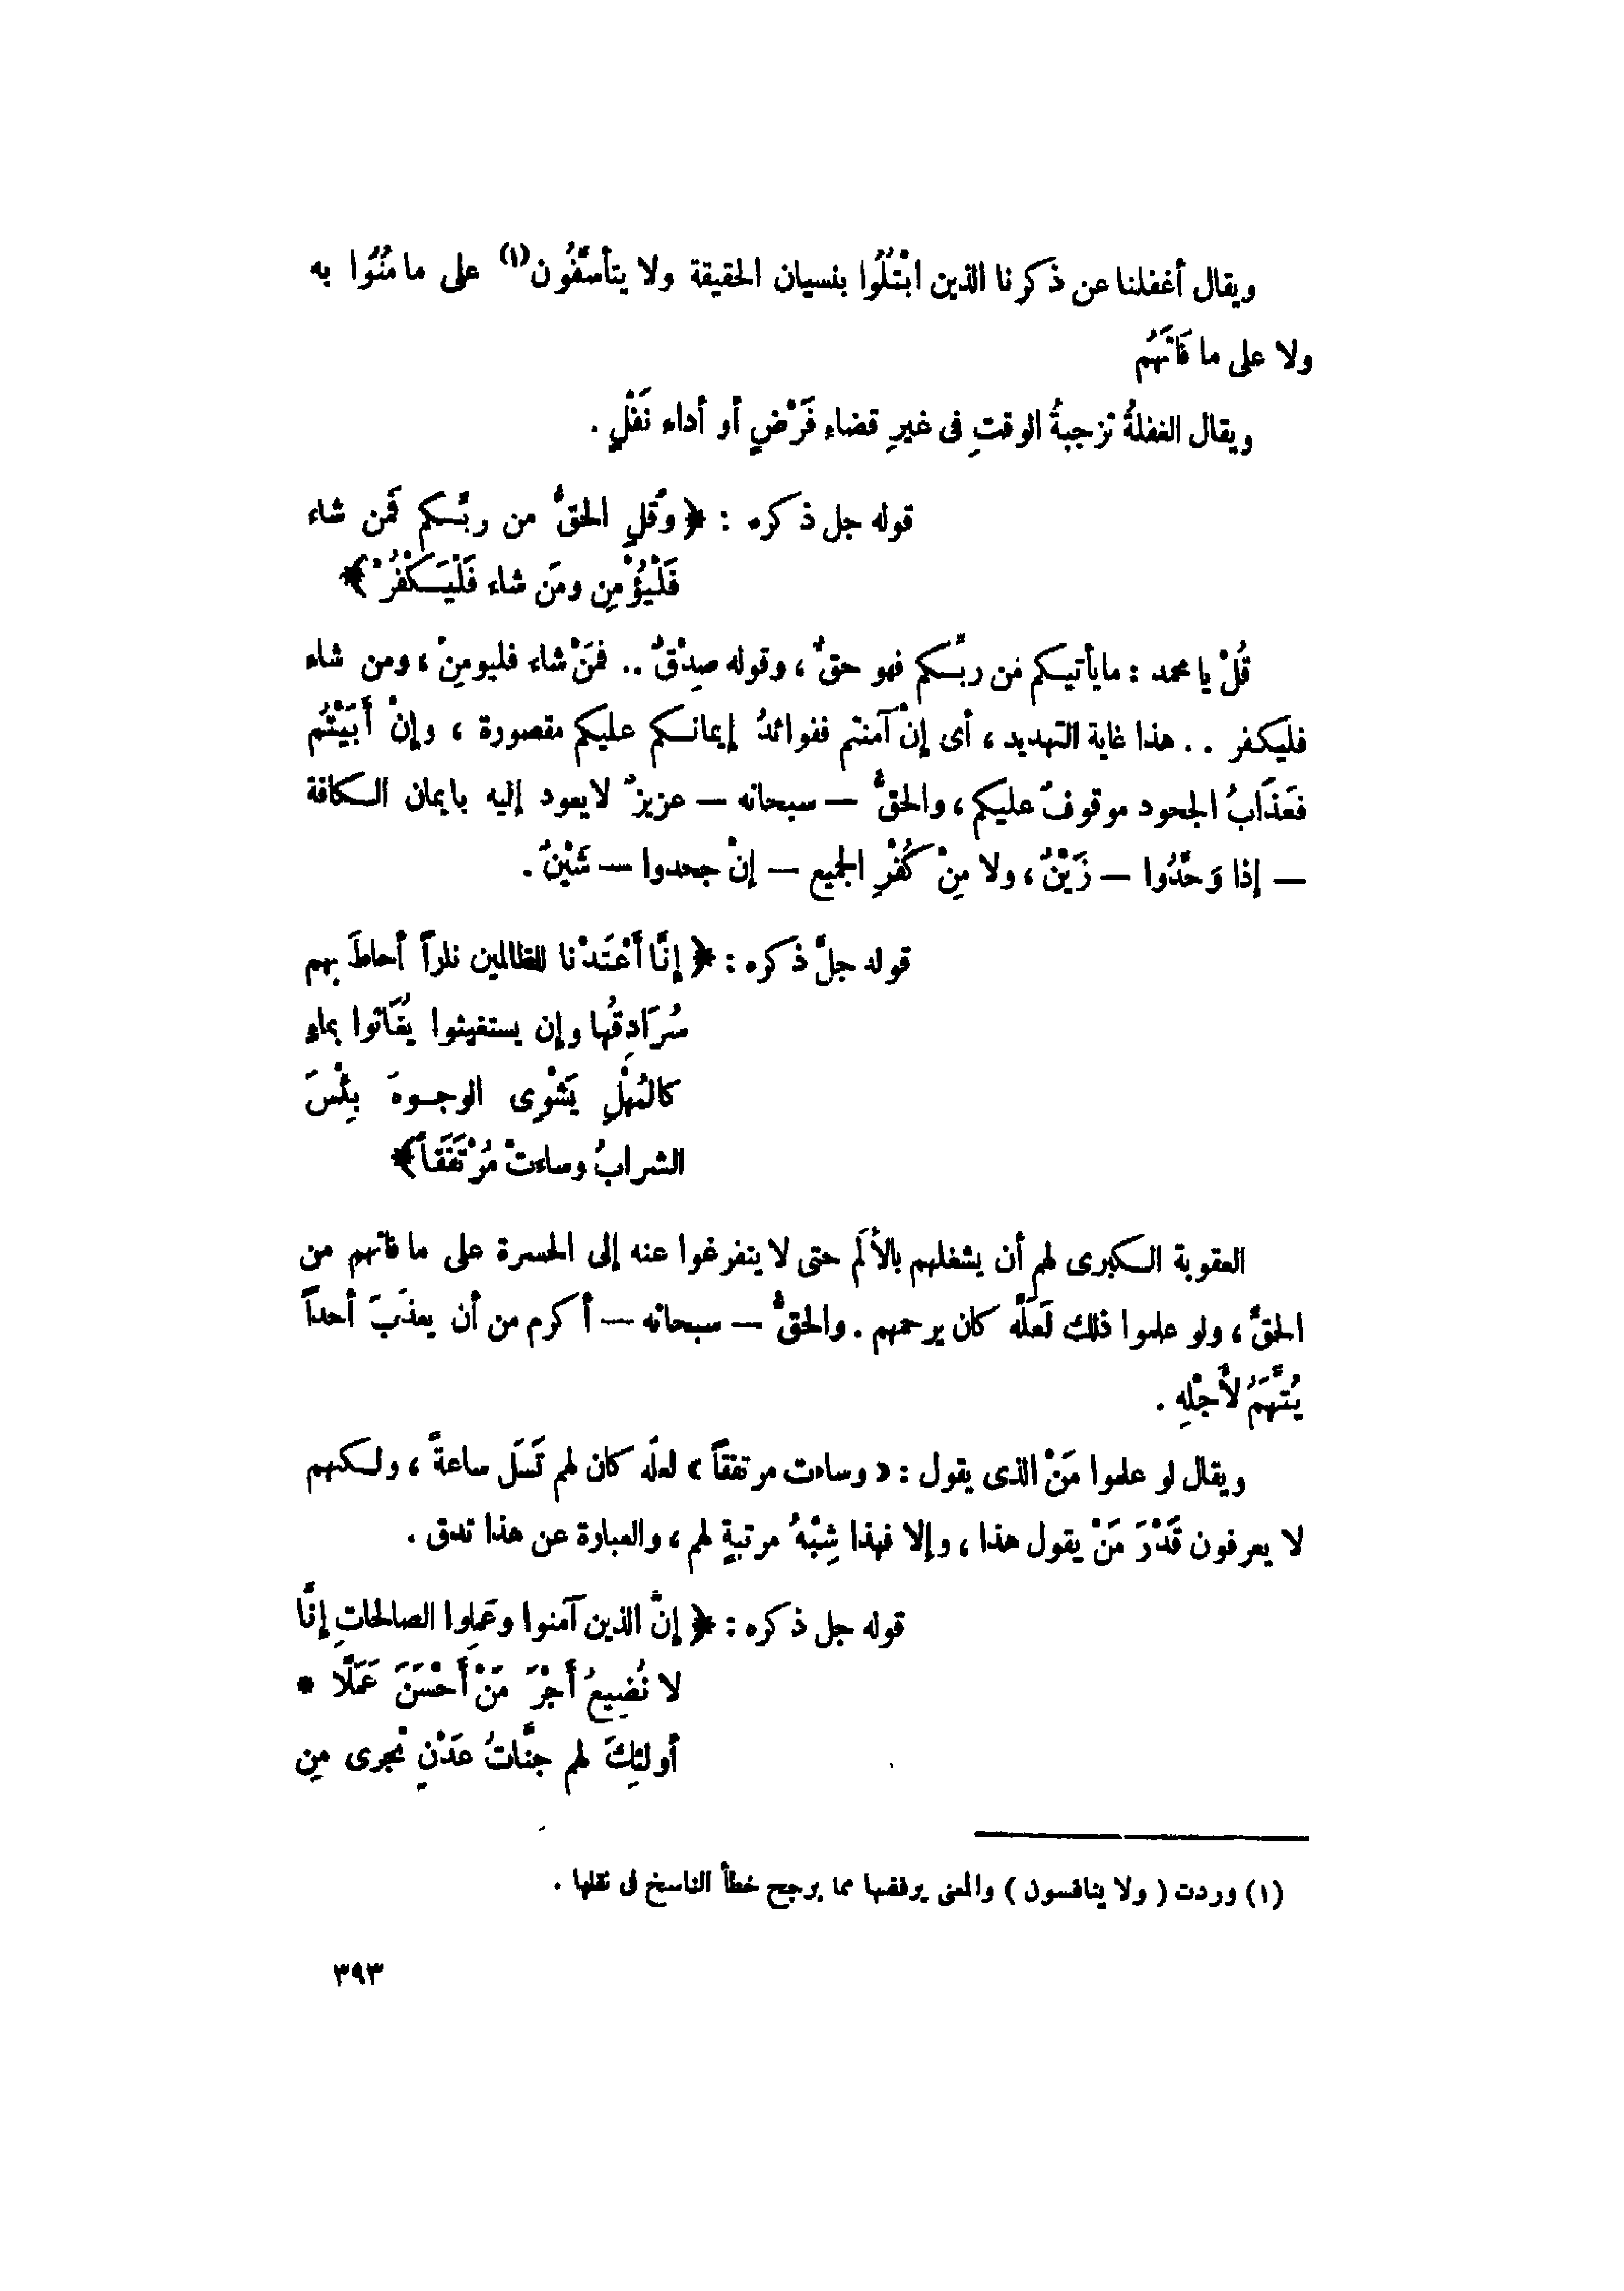 ويقال أغفلنا عن ذكرنا الذين ابْتُلُوا بنسيان الحقيقة ولا يتأسَّفُون(١) على ما مُنُوا به
ولا على ما فَاتَهُم
ويقال الغفلةُ تزجيةُ الوقتِ فى غيرِ قضاءِ فَرْضٍ أو أداء نَفْلٍ .
قوله جل ذكره : ﴿ وقُلِ الحقُّ من ربِّكم فَمن شاء
فَلْيُؤْمِن ومَن شاء فَلْيَكْفُرْ ﴾
قُلْ يا محمد : ما يأتيكم مَن ربِّكم فهو حقٌّ ، وقوله صِدْقٌ .. فمَنْ شاء فليومِنْ ، ومن شاء
فليكفر .. هذا غاية التهديد ، أى إنْ آمنتم ففوائدُ إيمانكم عليكم مقصورة ، وإنْ أَبَيْتُم
فعَذَابُ الجحود موقوفٌ عليكم ، والحقُّ — سبحانه — عزيزٌ لا يعود إليه بايمان الكافة
— إذا وَحَّدُوا — زَيْنٌ ، ولا مِنْ كُفْرِ الجميع — إنْ جحدوا — شَيْنٌ .
قوله جلَّ ذكره : ﴿ إنَّا أَعْتَدْنا للظالمين ناراً أحاطَ بهم
سُرَادِقُها وإن يستغيثوا يُغَاثوا بماءٍ
كالمُهْلِ يَشْوِى الوجوهَ بِئْسَ
الشرابُ وساءتْ مُرْتَفَقَاً ﴾
العقوبة الكبرى لهم أن يشغلهم بالأَلَم حتى لا يتفرغوا عنه إلى الحسرة على ما فاتهم من
الحقِّ ، ولو علموا ذلك لَعَلَّه كان يرحمهم . والحقُّ — سبحانه — أكرم من أن يعذِّبَ أحداً
يُتَّهَمُ لأَجْلِهِ .
ويقال لو علموا مَنْ الذى يقول : « وساءت مرتفقاً » لعلَّه كان لهم تَسَلٍ ساعةً ، ولكنهم
لا يعرفون قَدْرَ مَنْ يقول هذا ، وإلا فهذا شِبْهُ مرتبةٍ لهم ، والعبارة عن هذا تدق .
قوله جل ذكره : ﴿ إنَّ الذين آمنوا وعَمِلوا الصالحاتِ إنَّا
لا نُضِيعُ أَجْرَ مَنْ أَحْسَنَ عَمَلًا *
أولئِكَ لهم جنَّاتُ عَدْنٍ تجرى مِن
(١) وردت ( ولا يتنافسون ) والمعنى يرفضها مما يرجح خطأ الناسخ فى نقلها .
٣٩٣